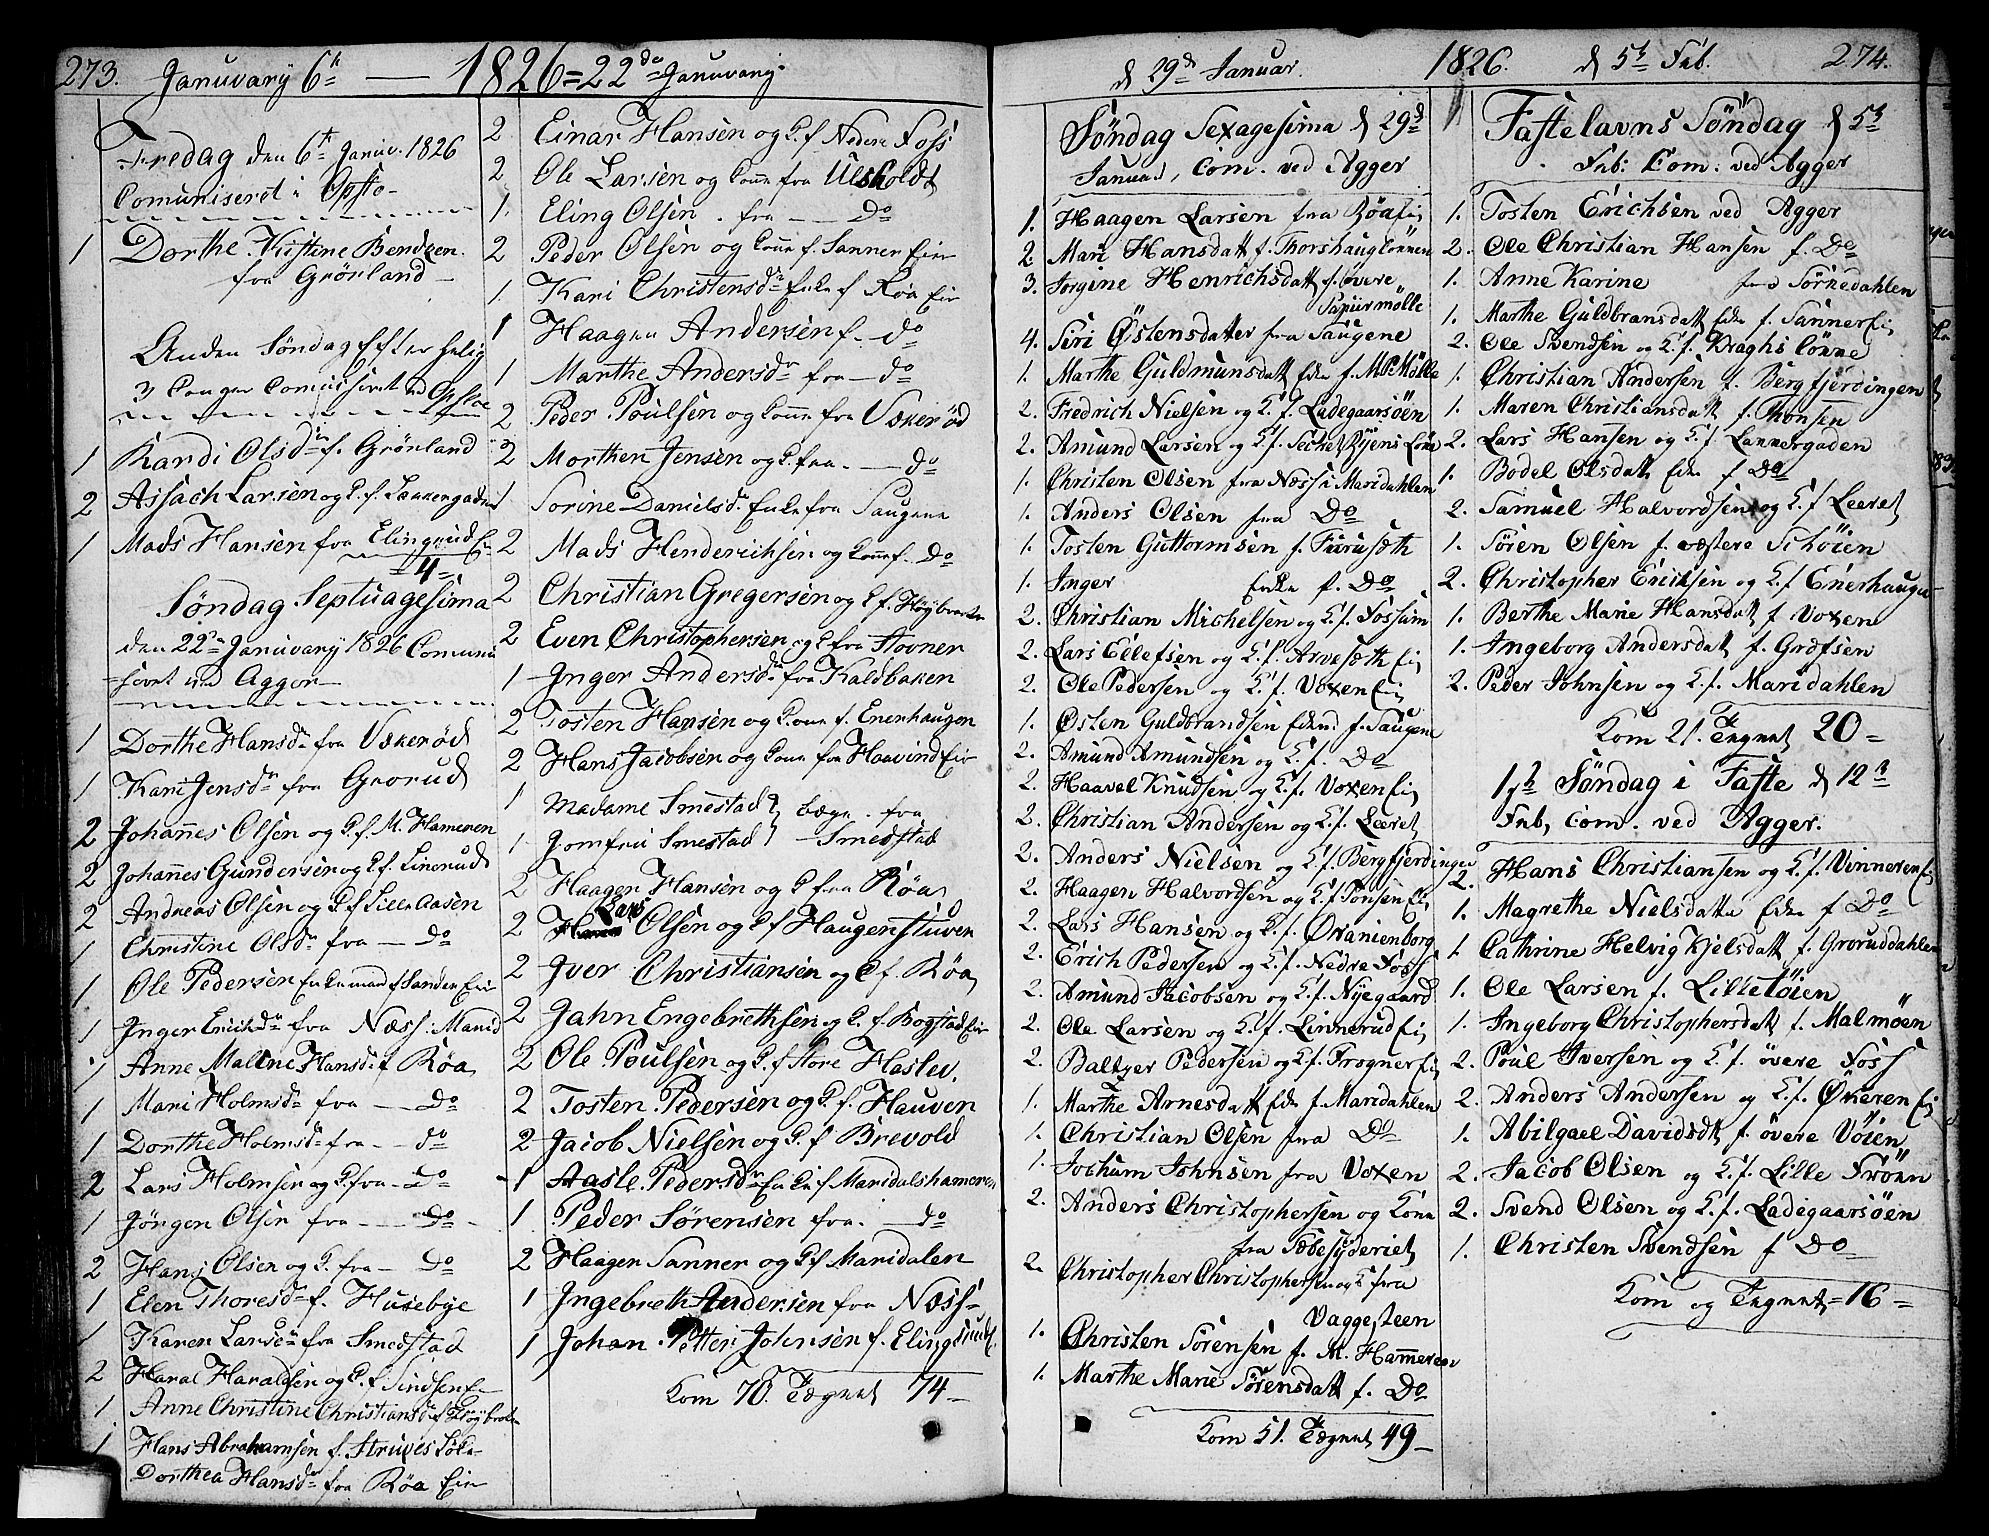 273. Januvarÿ 6te — 1826 = 22de Januvarÿ
Fredag den 6te Januv. 1826
Comuniseret i Opslo
1 Dorthe Kistine Bendzen
fra Grørland
Anden Søndag Efter helig
3 Konger Comuniseret ved Opsloe
1 Kardi Olsdr f. Grørland
2 Assach Larsen og K. f. Lakkergaden
1 Mads Hansen fra Elingrud Eie
= 4 =
Søndag Septuagesima
den 22de Januvarÿ 1826 Comuni
=seret ved Aggor
1 Dorthe Hansdr fra Uskerød
1 Kari Jensdr fra Grorud
2 Johannes Olsen og K. f. M. Hameren
2 Johannes Gundersen og K f Linerud
2 Andreas Olsen og K f Lille Aasen
1 Christine Olsdr fra — do
1 Ole Pedersen Enkemand f Sanden Eie
1 Inger Ericksdr fra Næss. Marid
1 Anne Malene Hansdr f Røa
1 Mari Holmsdr fra — Do
1 Dorthe Holmsdr fra — do
2 Lars Holmsen og K. fra — Do
1 Jörgen Olsen fra — Do
2 Hans Olsen og K. fra — Do
1 Elen Thoresdr f. Husebye
1 Karen Larsdr fra Smedstad
2 Haral Haraldsen og K. f Sindsen Eie
1 Anne Christine Christiansdr f Høybroten
1 Hans Abrahamsen f. Struves Løke
Dorthea Hansdr fra Røa Eie
2 Einar Hansen og K. f Nedere Foss
2 Ole Larsen og Kone fra Ulsholdt
1. Eling Olsen. fra — Do
2 Peder Olsen og Kone f. Sanner Eie
1. Kari Christensdr Enke f Røa Eie
1 Haagen Andersen f. do
1 Marthe Andersdr fra — do
2 Peder Poulsen og Kone fra Uskerød
2 Morthen Jensen og K. fra. — do
1 Sorine Danielsdr Enke fra Saugene
2 Mads Henderichsen og Kone f. Do
2 Christian Gregersen og K f. Høybraaten
2 Even Christophersen og K fra Stovner
1 Inger Andersdr fra Kaldbaken
2 Tosten Hansen og Kone f. Enerhaugen
2 Hans Jacobsen og Kone fra Haavind Eie
1 Madame Smestad } bægge fra
1 Jomfrü Smestad } Smedstad
2 Haagen Hansen og K fra Røa
2 Lars Olsen og K f Haugenstuven
2 Iver Christiansen og K f. Røa
2 Jahn Engebrethsen og K. f. Bogstad Eie
2 Ole Poulsen og K. f Store Haslev.
2 Tosten Pedersen og K. f. Hauven
2 Jacob Nielsen og K. f Brevold
1 Aasle Pedersdr Enke f Maridalshameren
1 Peder Sørensen fra. — do
2 Haagen Sanner og K f Maridalen
1 Ingebreth Andersen fra Næss
1 Johan Petter Johnsen f. Elingsrud E.
Kom 70. Tegnet 74
d 29de Januar. 1826. d 5te Feb. 274.
Søndag Sexagesima d 29de
Januar, Com. ved Agger
1. Haagen Larsen fra Røa Eie
2. Mari Hansdatt f. Thorshaugløkken
3. Jorgine Henrichsdatt f. øvere
Papiirmölle
4. Siri Östensdatter fra Saugene
1. Marthe Guldmunsdatt Enke f. M. P. Mölle
2. Fredrich Nielsen og K. f. Ladegaarsöen
2. Amund Larsen og K. f. Secret Ryens Løke
1. Christen Olsen fra Næss i Maridahlen
1. Anders Olsen fra Do
1. Tosten Guttormsen f. Furusæth
1. Inger Enke f. Do
2. Christian Michelsen og K. f. Fossum
2. Lars Ellefsen og K. f. Arvesæth Ei
2. Ole Pedersen og K. f. Voxen Ei
1. Østen Guldbrandsen Enkem. f. Saugene
2. Amund Amundsen og K. f. Do
2. Haavel Knudsen og K. f. Voxen Ei
2. Christian Andersen og K. f. Leeret
2. Anders Nielsen og K. f. Bergfjerdingen
2. Haagen Halvordsen og K. f. Tonsen Ei
2. Lars Hansen og K. f. Oranienborg
2. Erich Pedersen og K. f. Nedre Foss
2. Amund Jacobsen og K. f. Nyegaard
2. Ole Larsen og K. f. Linnerud Ei
2. Baltzer Pedersen og K. f. Frogner Ei
1. Marthe Arnesdatt Enke f. Maridahlen
1. Christian Olsen fra Do
1. Jochum Johnsen fra Voxen
2. Anders Christophersen og Kone
fra Sæbesyderiet
2. Christopher Christophersen og K fra
Vaggesteen
1. Christen Sörensen f. M. Hammeren
1. Marthe Marie Sörensdatt f. Do
Kom 51. Tegnet 49
Fastelavns Söndag d 5te
Feb: Com: ved Agger
1. Tosten Erichsen ved Agger
2. Ole Christian Hansen f. Do
1. Anne Karine fra Sörkedahlen
1. Marthe Guldbransdatt Enke f. Sanner Ei
2. Ole Svendsen og K. f. Kraghs Lökke
1. Christian Andersen f. Bergfjerdingen
1. Maren Christiansdatt f. Thonsen
2. Lars Hansen og K. f. Lakkergaden
1. Bodel Olsdatt Enke f Do
2. Samuel Halvordsen og K. f Leeret
1. Sören Olsen f. væstere Schöien
2. Christopher Ericksen og K. f Enerhaugen
1. Berthe Marie Hansdatt f Voxen
1. Ingeborg Andersdatt f. Grefsen
2. Peder Johnsen og K. f. Maridahlen
Kom 21. Tegnet 20
1ste Söndag i Faste d 12te
Feb, Com. ved Agger.
2. Hans Christiansen og K. f. Vinneren Ei
1. Magrethe Nielsdatter Enke f Do
1 Cathrine Helvig Kjelsdatt f. Groruddahlen
1. Ole Larsen f. Lilletöien
1. Ingeborg Christophersdatt f. Malmöen
2. Poul Iversen og K. f. övere Foss
2. Anders Andersen og K. f. Økeren Ei
1. Abilgael Davidsdt f. övere Vöien
2. Jacob Olsen og K. f. Lille Frön
2. Svend Olsen og K. f. Ladegaarsöen
1. Christen Svendsen f Do
Kom og Tegnet = 16 =